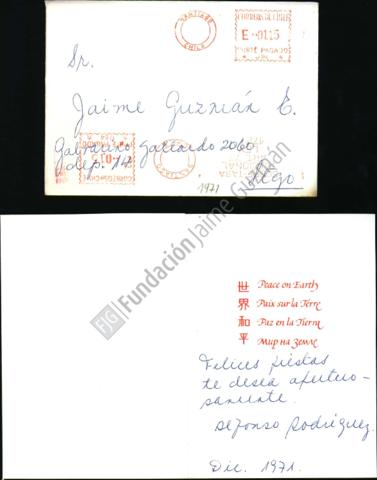 SANTIAGO
CHILE
CORREOS DE CHILE
E 0115
PORTE PAGADO
Sr.
Jaime Guzmán E.
Galvarino Gallardo 2060
dep. 14
Stgo
1971
FJG Fundación Jaime Guzmán
世界和平
Peace on Earth
Paix sur la Terre
Paz en la Tierra
Мир на Земле
Felices fiestas
te desea afectuo-
samente.
Alfonso Rodríguez.
Dic. 1971.